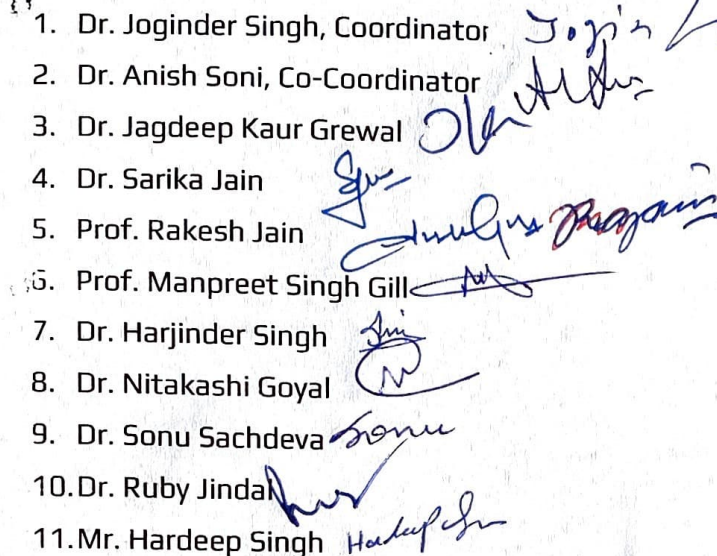 1. Dr. Joginder Singh, Coordinator
2. Dr. Anish Soni, Co-Coordinator
3. Dr. Jagdeep Kaur Grewal
4. Dr. Sarika Jain
5. Prof. Rakesh Jain
6. Prof. Manpreet Singh Gill
7. Dr. Harjinder Singh
8. Dr. Nitakashi Goyal
9. Dr. Sonu Sachdeva Sonu
10. Dr. Ruby Jindal
11. Mr. Hardeep Singh